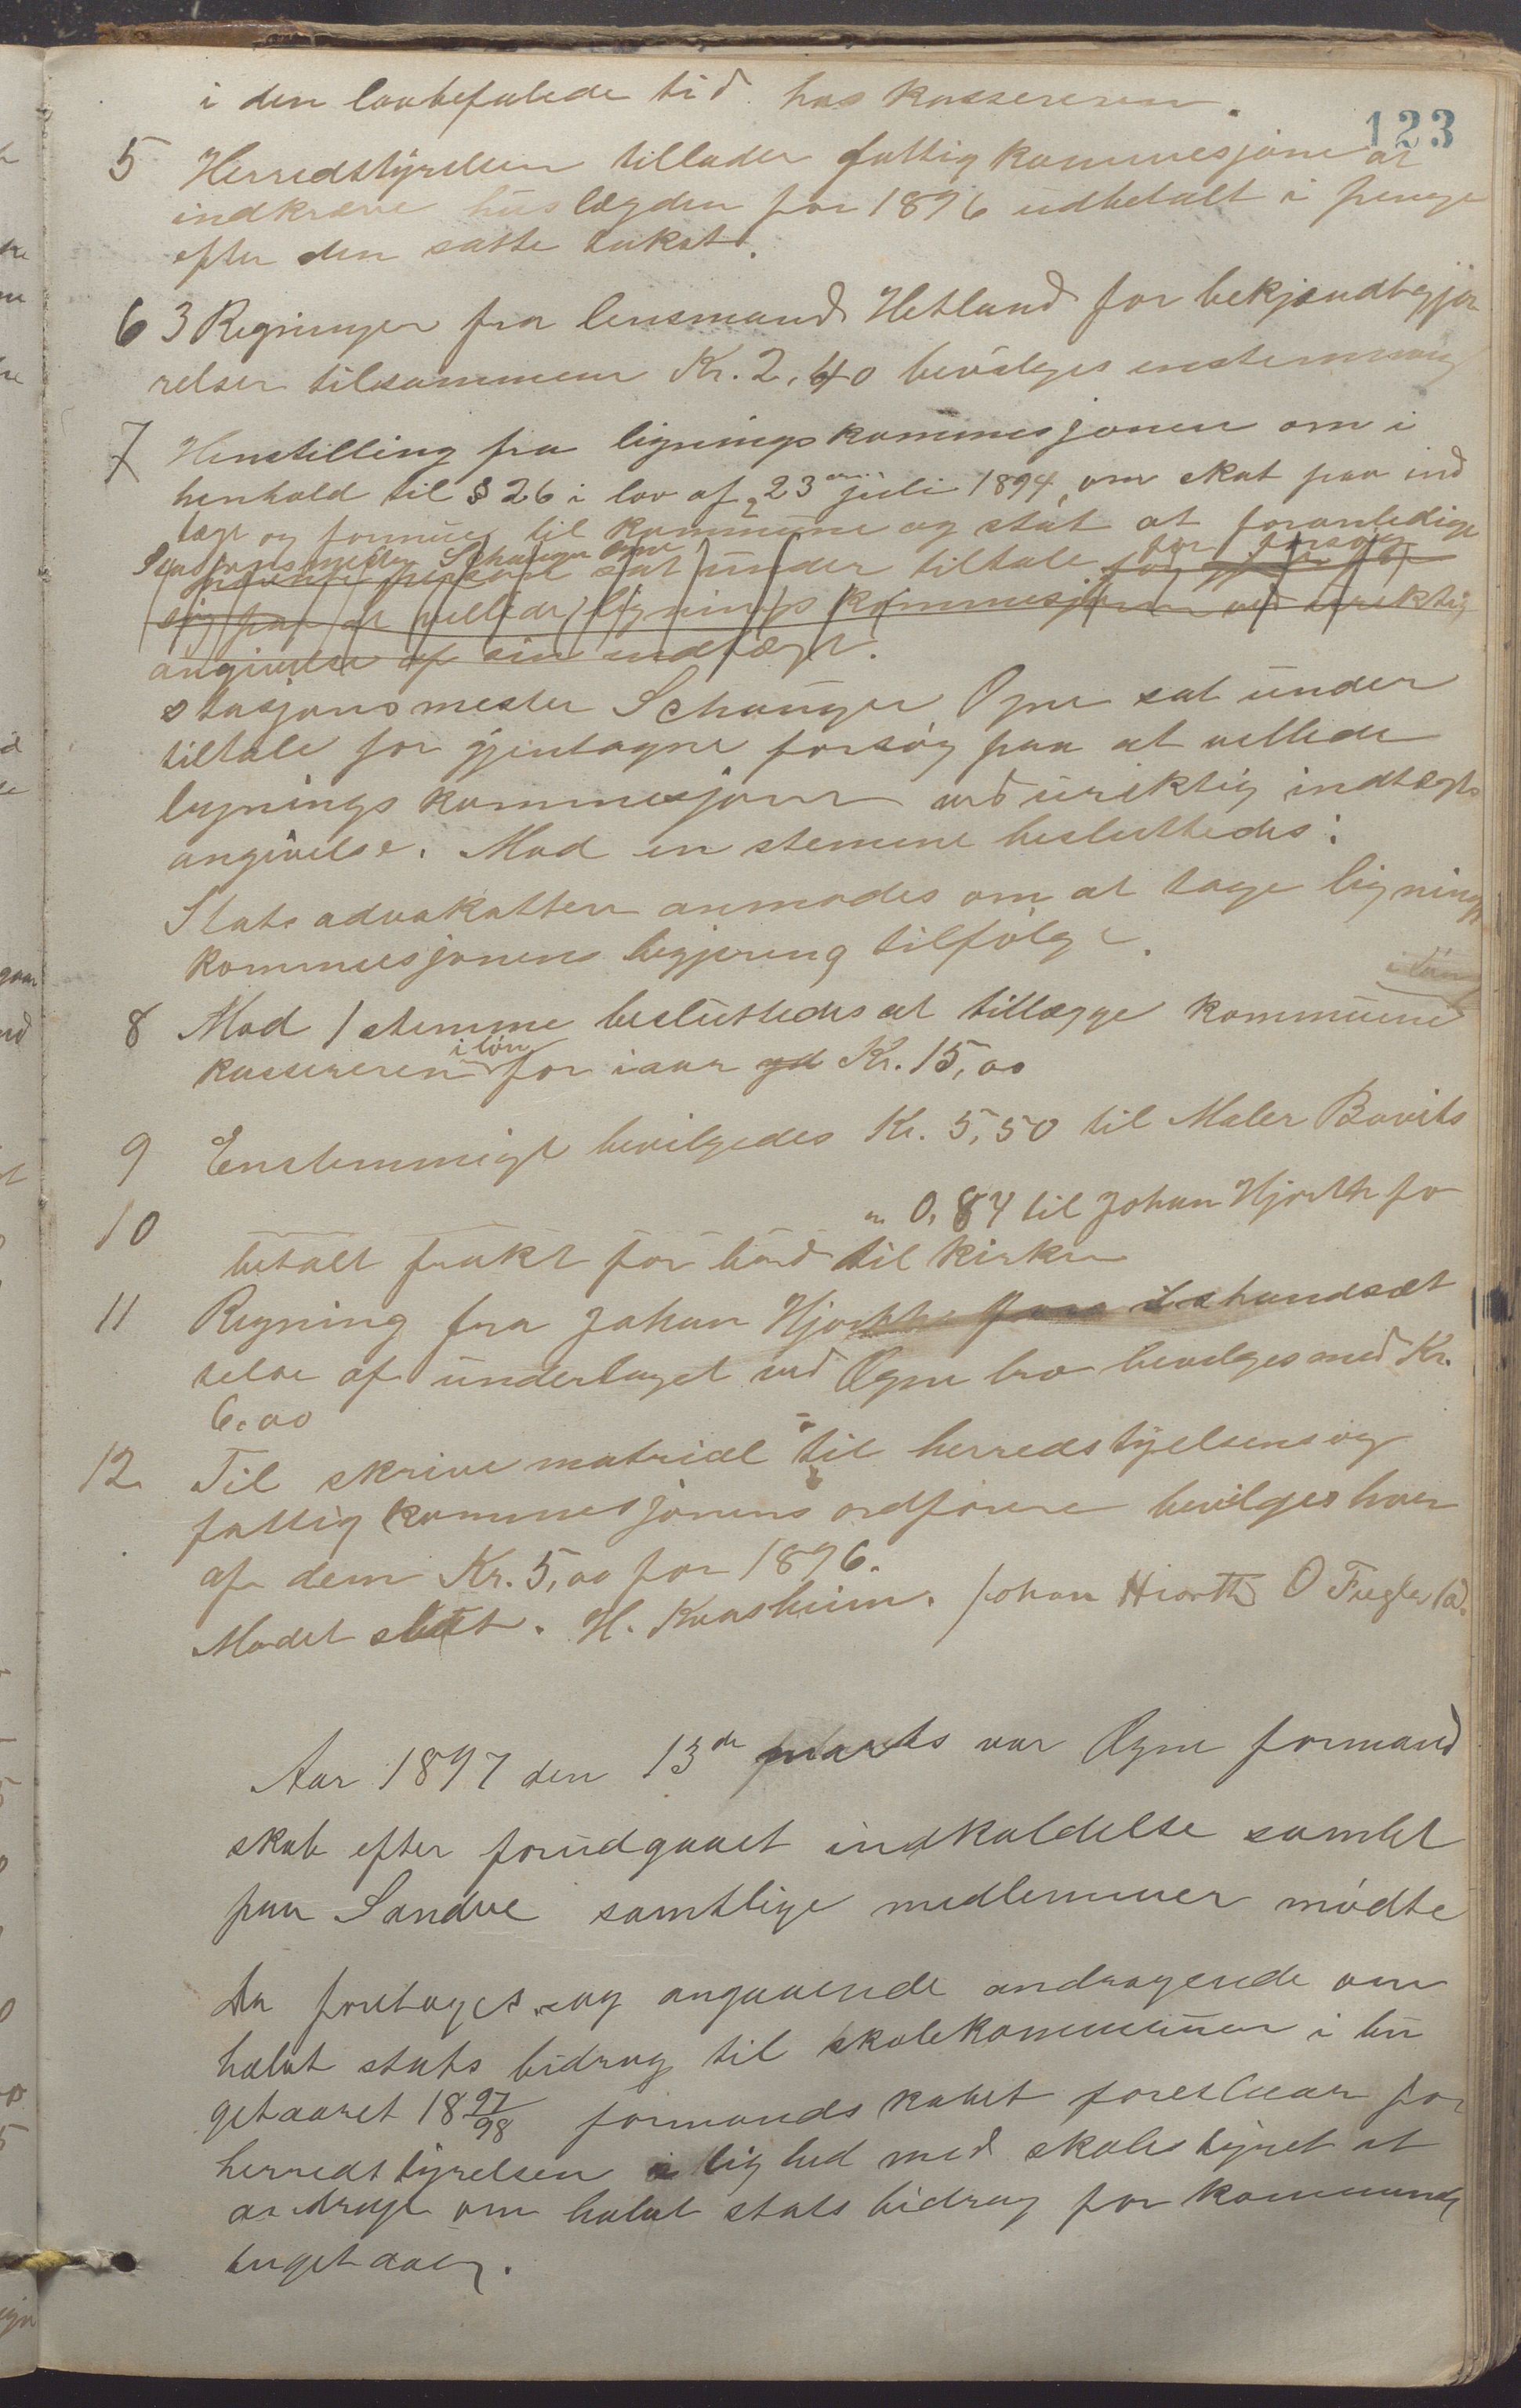 123
i den lovbefalede tid hos kassereren.
5 Herredstyrelsen tillader fattigkommesjonen at
indkræve huslægden for 1896 udbetalt i penge
efter den satte takst.
6 3 Regninger fra lensmand Hetland for bekjendtgjør
relser tilsammen Kr. 2,40 bevilges enstemmig
7 Henstilling fra ligningskommesjonen om i
henhold til § 26 i lov af 23 juli 1894, om skat paa ind
tægt og formue til kommune og stat at foranledige
Stasjonsmester Schanger Ogne for forsøg
person sat under tiltale for
sig paa at villede ligningskommesjonen ved urektig
angivelse af sin indtægt.
stasjonsmester Schanger, Ogne sat under
tiltale for gjentagne forsøg paa at villede
lignings kommesjonen ved urektig indtægts
angivelse. Mod en stemme besluttedes:
Statsadvokatten anmodes om at tage lignings
kommesjonens begjæring tilfølge.
i løn
8 Mod 1 stemme besluttedes at tillægge kommune
kassereren i løn for iaar Kr. 15,00
9 Enstemmigt bevilgedes Kr. 5,50 til Maler Bovits
10 " 0,84 til Johan Hjorth for
betalt frakt for bord til kirken
11 Regning fra Johan Hjorth istandsæt
telse af underlaget ved Ogne bro bevilges med Kr.
6,00
12 Til skrivematrial til herredstyelsens og
fattigkommesjonens ordførere bevilges hver
af dem Kr. 5,00 for 1896.
Mødet slut. H. Kvasheim. Johan Hiorth O Fuglestad.
Aar 1897 den 13de marts var Ogne formand
skab efter forudgaaet indkaldelse samlet
paa Sandve samtlige medlemmer mødte
Da foretoges sag angaaende andragende om
halvt stats bidrag til skolekommunen i bu
getaaret 1897/98 formandskabet foreslaar for
herredstyrelsen i lighed med skolestyret at
andrage om halvt stats bidrag for kommende
bugetaar.